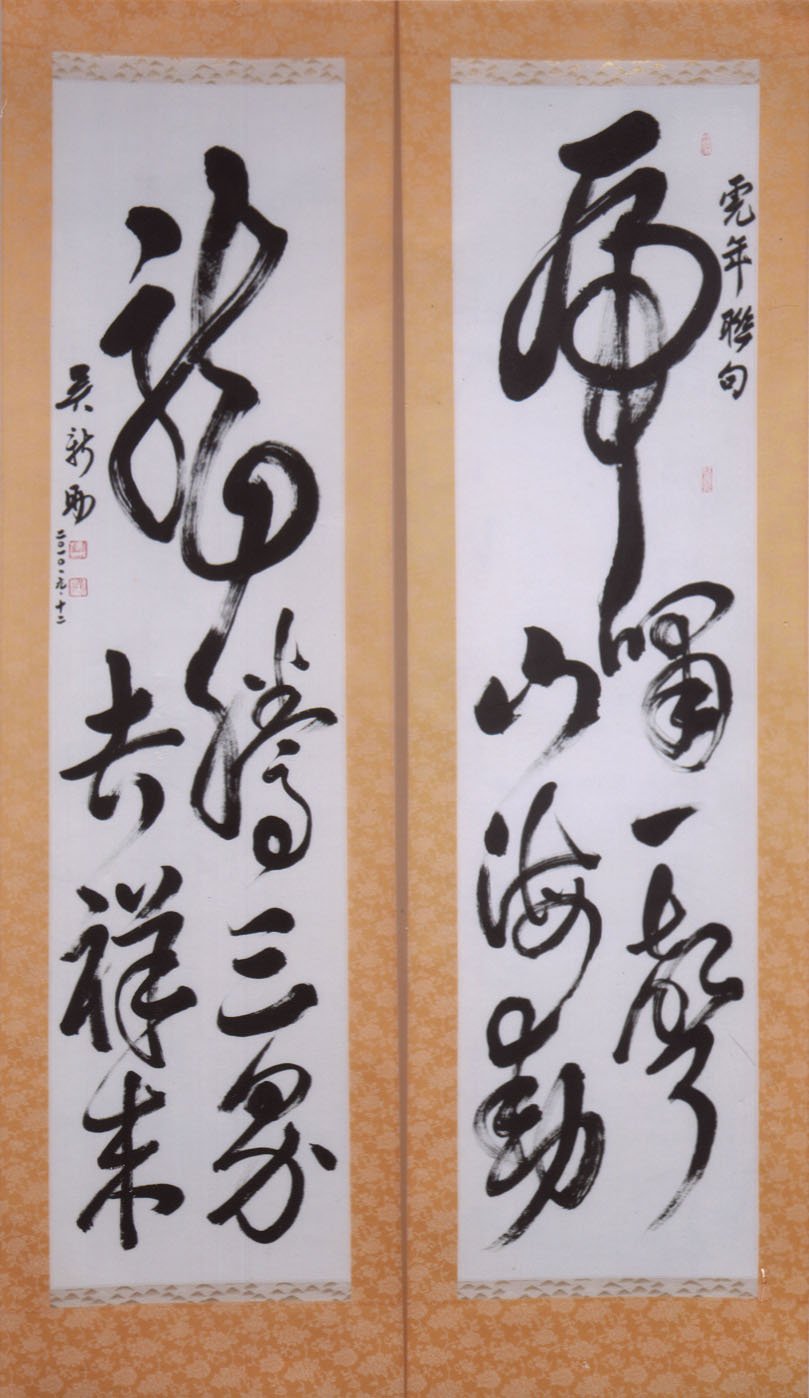 虎年聯句
虎嘯一聲
山海動
龍騰三界
吉祥來
吳新
二〇一〇·元·十二